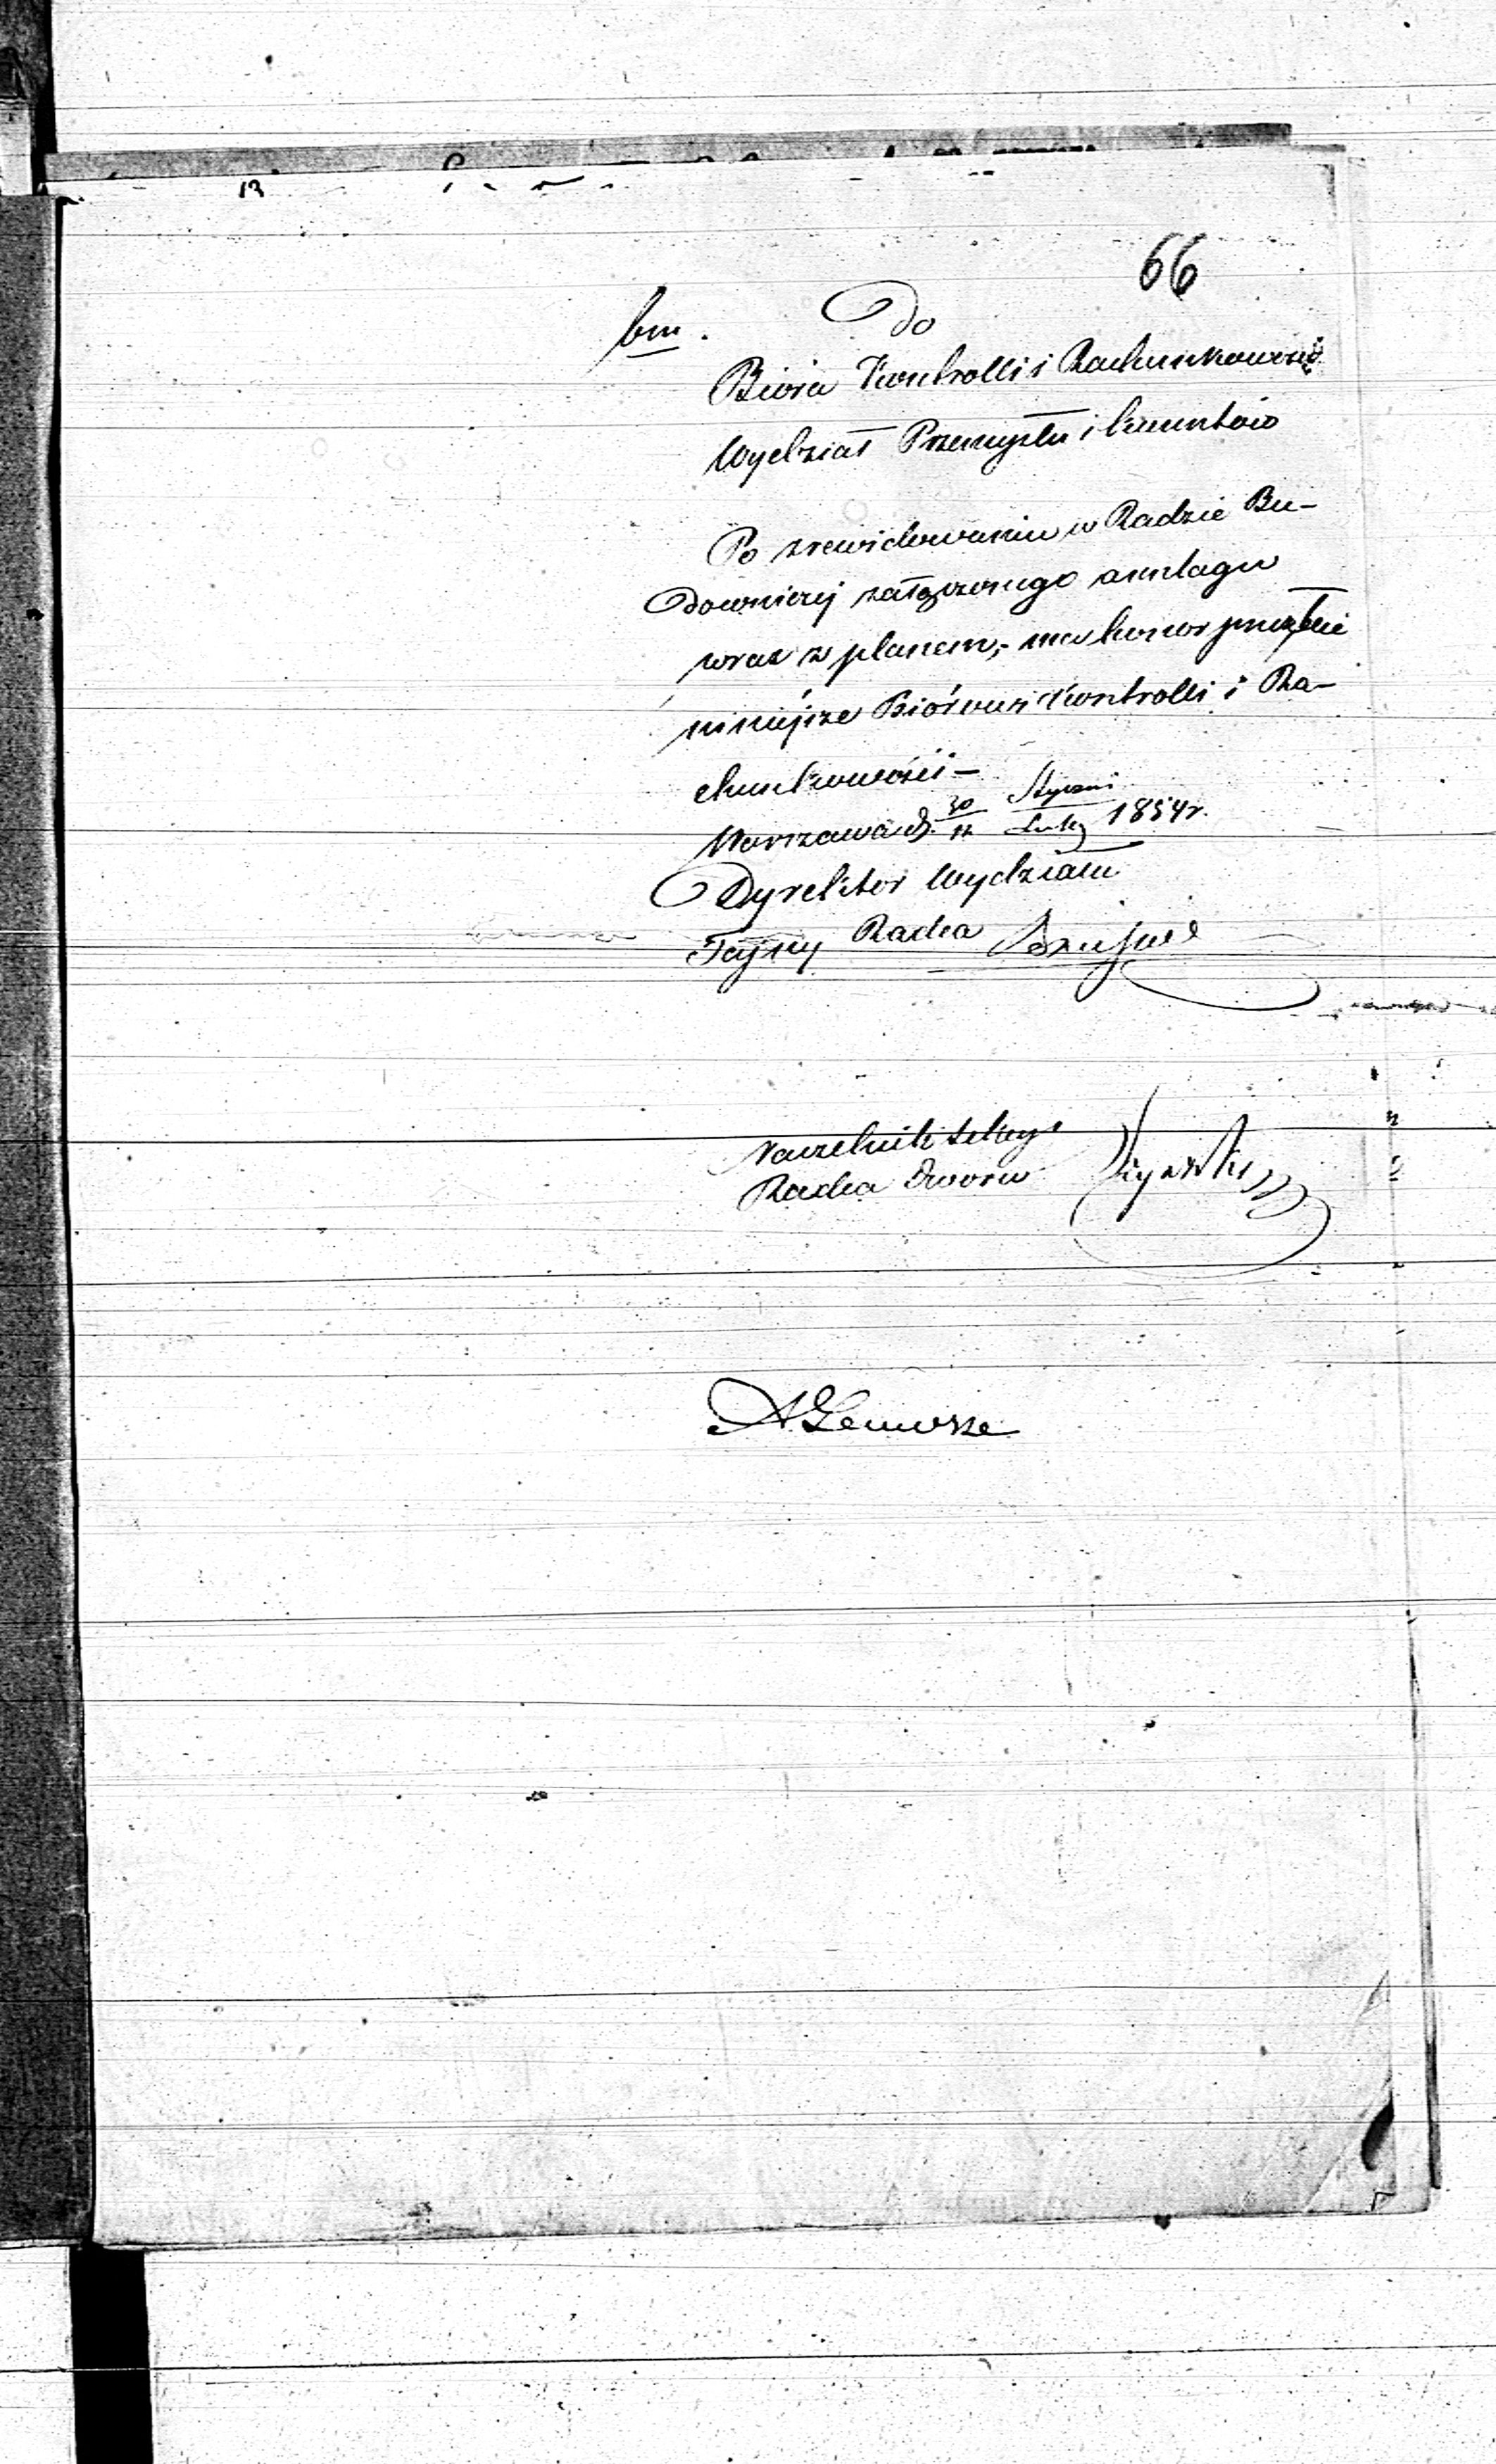 66
bm. Do
Biora Kontrolli i Rachunkowości
Wydział Przemysłu i Kunsztów
Po zrewidowaniu w Radzie Bu-
downiczej załączonego anszlagu
wraz z planem, - ma honor
niniejsze Biórowi Kontrolli i Ra-
chunkowości -
Warszawa d. 30/11 Styczni/Luteg 1854 r.
Dyrektor Wydziału
Tajny Radca
Naczelnik Sekcyi
Radca Dworu